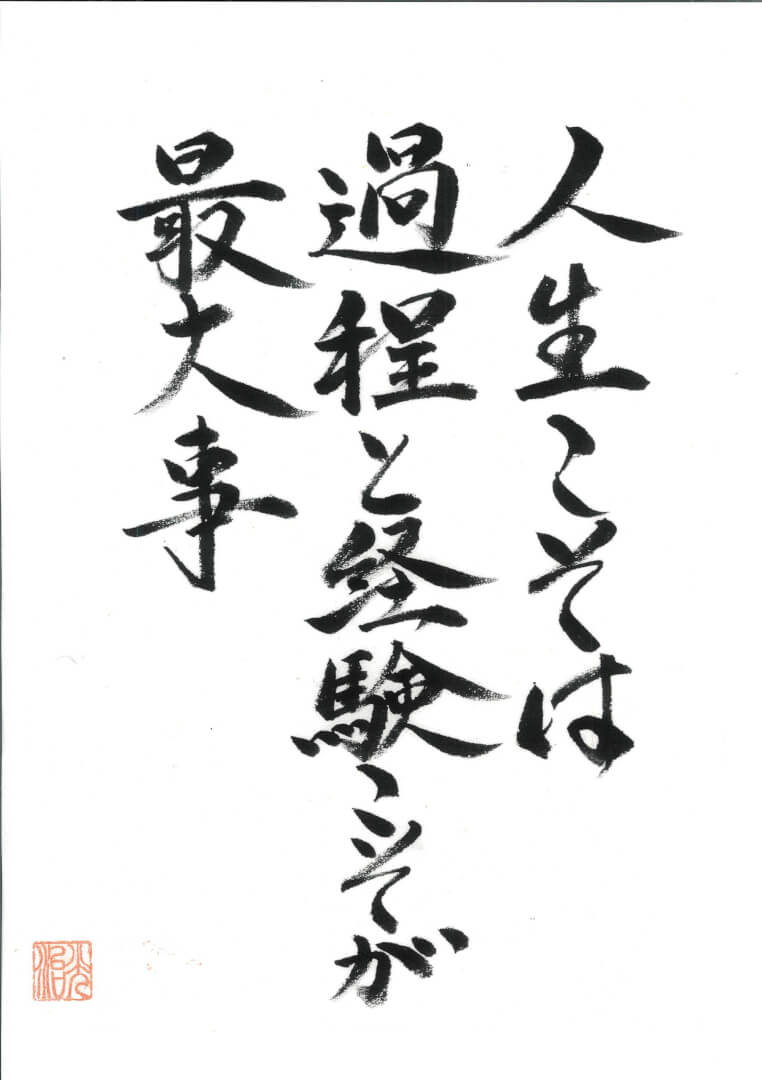 人生こそは
過程と経験こそが
最大事